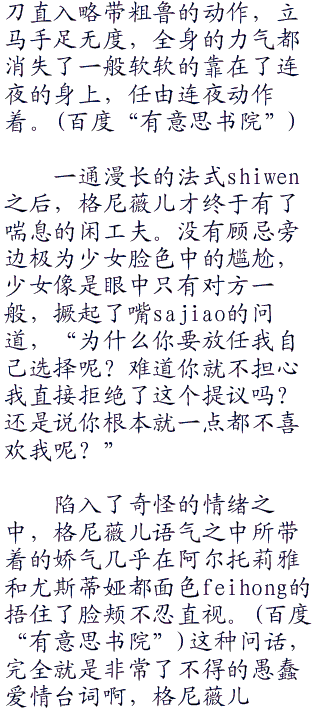 刀直入略带粗鲁的动作，立
马手足无度，全身的力气都
消失了一般软软的靠在了连
夜的身上，任由连夜动作
着。(百度“有意思书院”)
一通漫长的法式shiwen
之后，格尼薇儿才终于有了
喘息的闲工夫。没有顾忌旁
边极为少女脸色中的尴尬，
少女像是眼中只有对方一
般，撅起了嘴sajiao的问
道，“为什么你要放任我自
己选择呢？难道你就不担心
我直接拒绝了这个提议吗？
还是说你根本就一点都不喜
欢我呢？”
陷入了奇怪的情绪之
中，格尼薇儿语气之中所带
着的娇气几乎在阿尔托莉雅
和尤斯蒂娅都面色feihong的
捂住了脸颊不忍直视。(百度
“有意思书院”)这种问话，
完全就是非常了不得的愚蠢
爱情台词啊，格尼薇儿